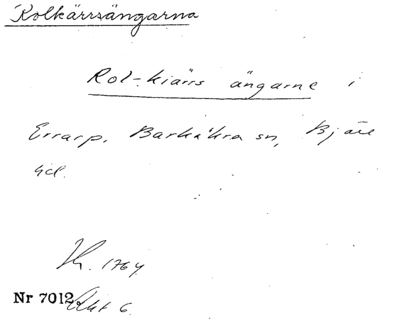 Kolkärrsängarna
Kol-kiärs ängarne i
Errarp, Barkåkra sn, Bjäre
hd.
1764
Nr 7012 Akt 6.